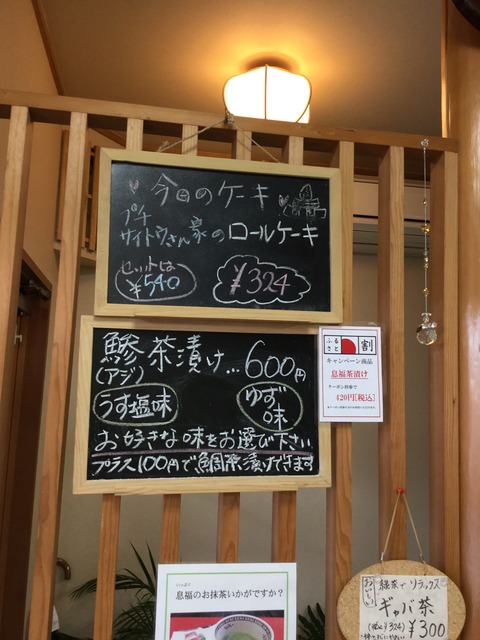 今日のケーキ
プチ
サイトウさん家のロールケーキ
セットは
¥540
¥324
鯵茶漬け…600円
(アジ)
うす塩味
ゆず味
お好きな味をお選び下さい
プラス100円で鯛茶漬けできます
ふるさと
割
キャンペーン商品
息福茶漬け
クーポン持参で
420円[税込]
息福のお抹茶いかがですか?
おいしい
緑茶でリラックス
ギャバ茶
(税込¥324)
¥300